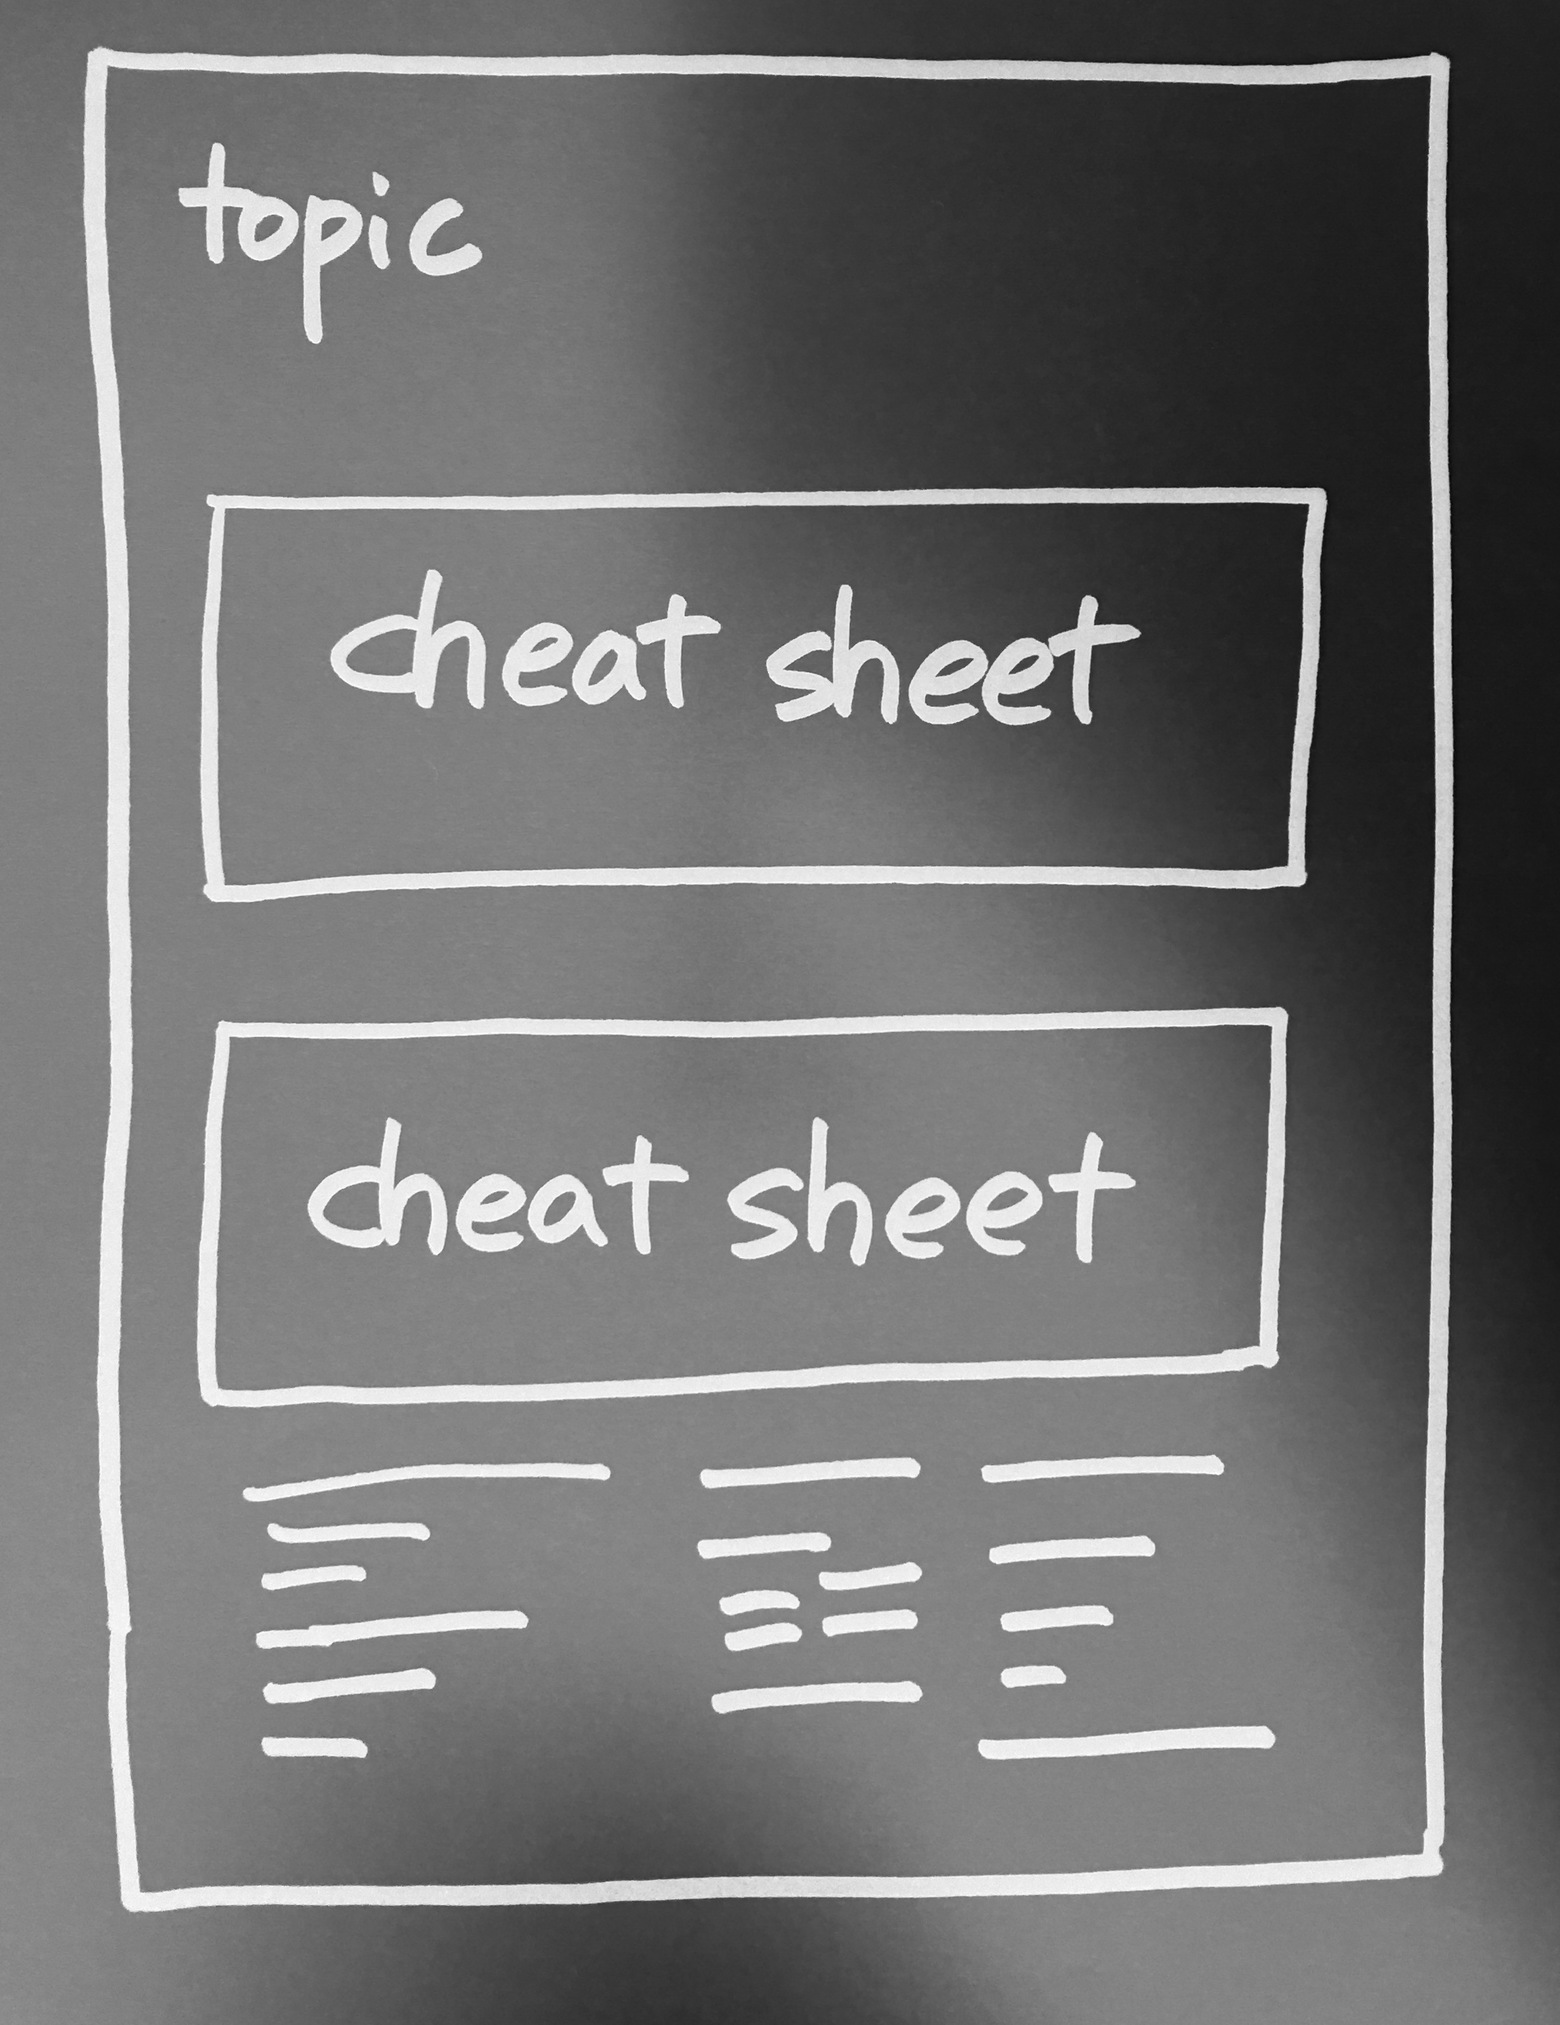 topic
cheat sheet
cheat sheet